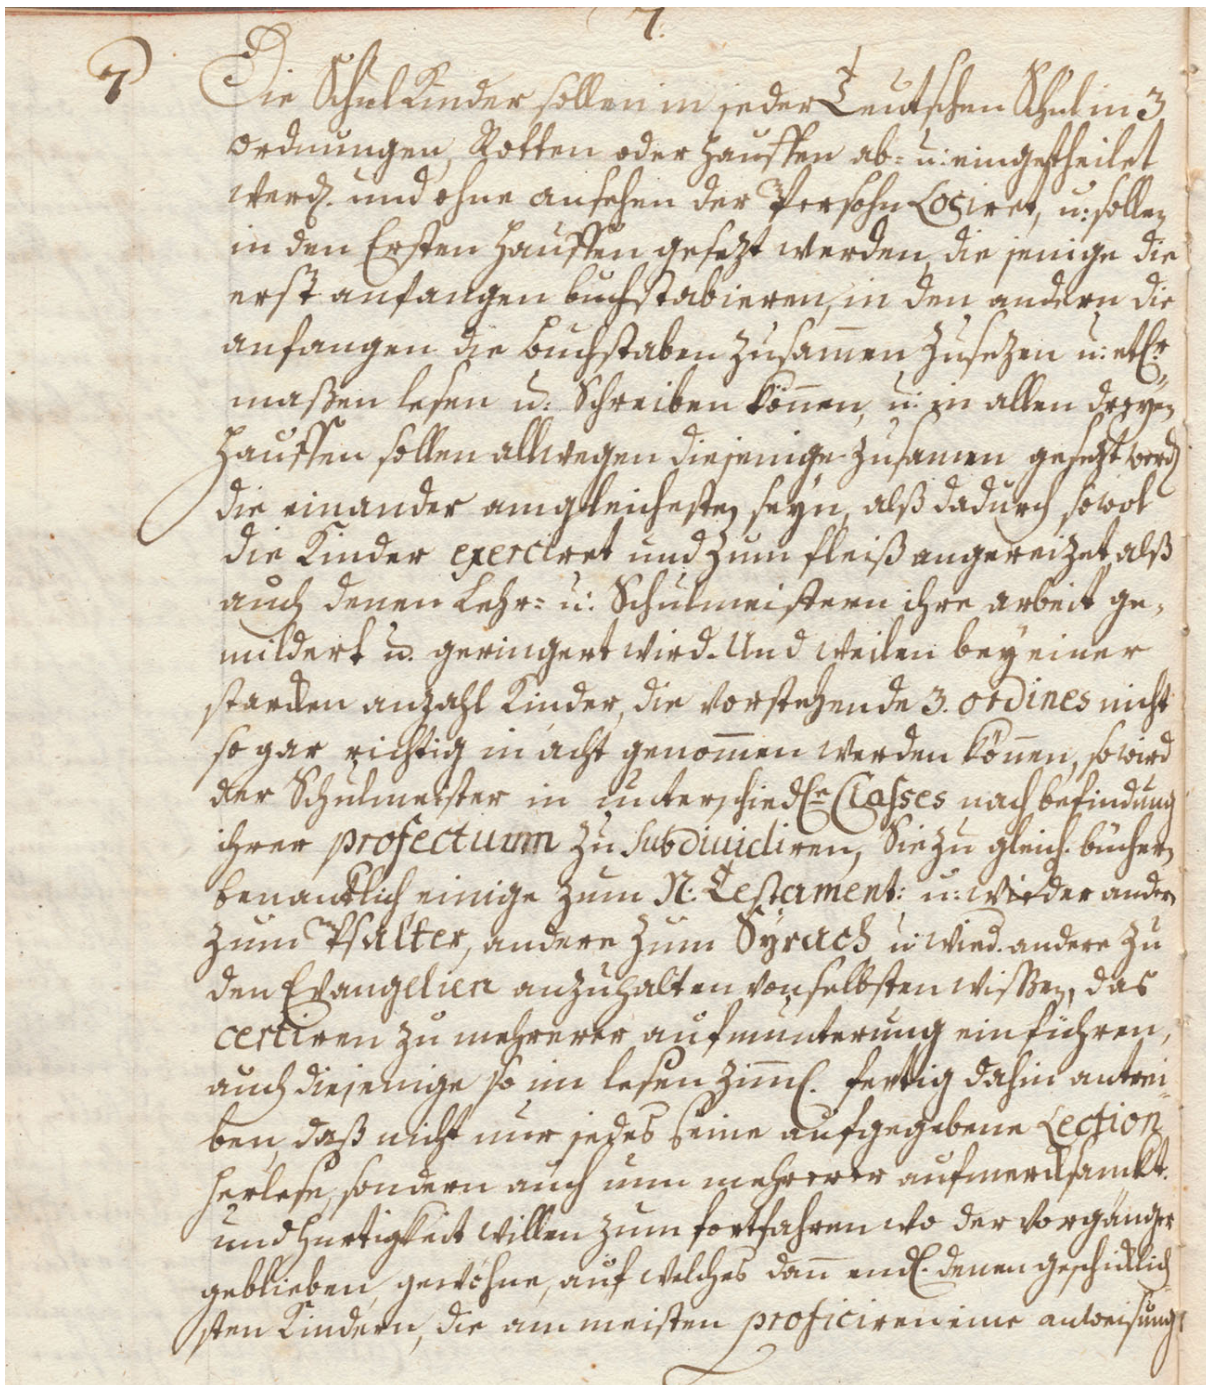 7.
7 Die Schul Kinder sollen in jeder Teutschen Schul in 3
ordnungen, Rotten oder Hauffen ab- u: eingetheilet
werd. und ohne ansehen der Persohn Lociret, u: sollen
in den Ersten Hauffen gesezt werden, die jenige die
erst anfangen buchstabieren, in den andern die
anfangen die buchstaben zusam̄en zusezen u: etl.r
maßen lesen u: Schreiben kön̄en, u: in allen dreyen
Hauffen sollen allwegen diejenige zusamen gesezt werd
die einander am gleichesten seyn, alß dadurch sowol
die Kinder exerciret und zum fleiß angereizet, alß
auch denen Lehr- u: Schulmeistern ihre arbeit ge-
mildert u. geringert wird. Und weilen bey einer
starcken anzahl Kinder, die vorstehende 3. ordines nicht
so gar richtig in acht genom̄en werden kön̄en, so wird
der Schulmeister in unterschiedl.e Classes nach befindung
ihrer profectuum zu subdiuidiren, Sie zu gleich. büchern
benantlich einige zum N: Testament: u: wieder andere
zum Psalter, andere zum Syrach u: wied. andere zu
den Evangelien anzuhalten von selbsten wissen, das
certiren zu mehrerer aufmunterung einführen,
auch diejenige so im lesen zim̄l. fertig dahin antrei-
ben, daß nicht nur jedes seine aufgegebene Lection
herlese, sondern auch um mehrerer aufmercksamkt.
und hurtigkeit willen zum fortfahren wo der vorgänger
geblieben, gewöhne, auf welches dan̄ endl. denen geschicklich-
sten Kindern, die am meisten proficiren eine anweisung